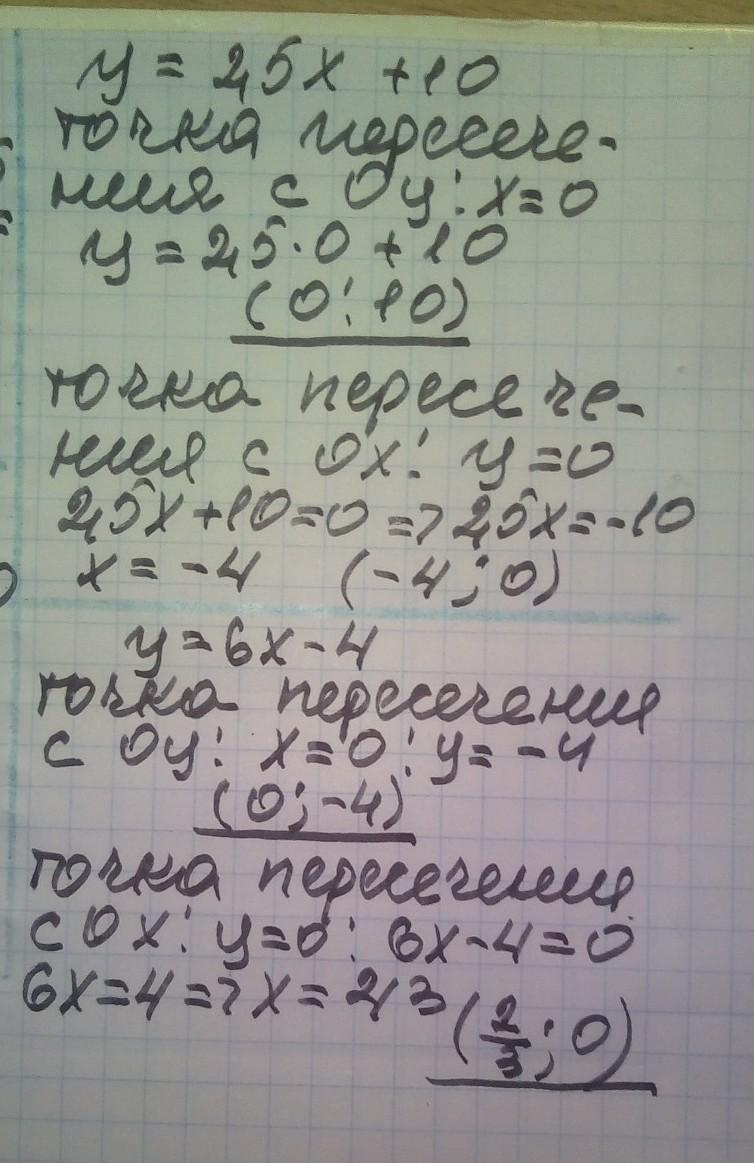 y = 2,5x + 10
точка пересече-
ния с Oy: x=0
y = 2,5·0 + 10
(0; 10)
точка пересече-
ния с Ox: y=0
2,5x+10=0 => 2,5x=-10
x = -4 (-4; 0)
y=6x-4
точка пересечения
с Oy: x=0: y= -4
(0; -4)
точка пересечения
с Ox: y=0: 6x-4=0
6x=4=> x= 2/3
(2/3; 0)